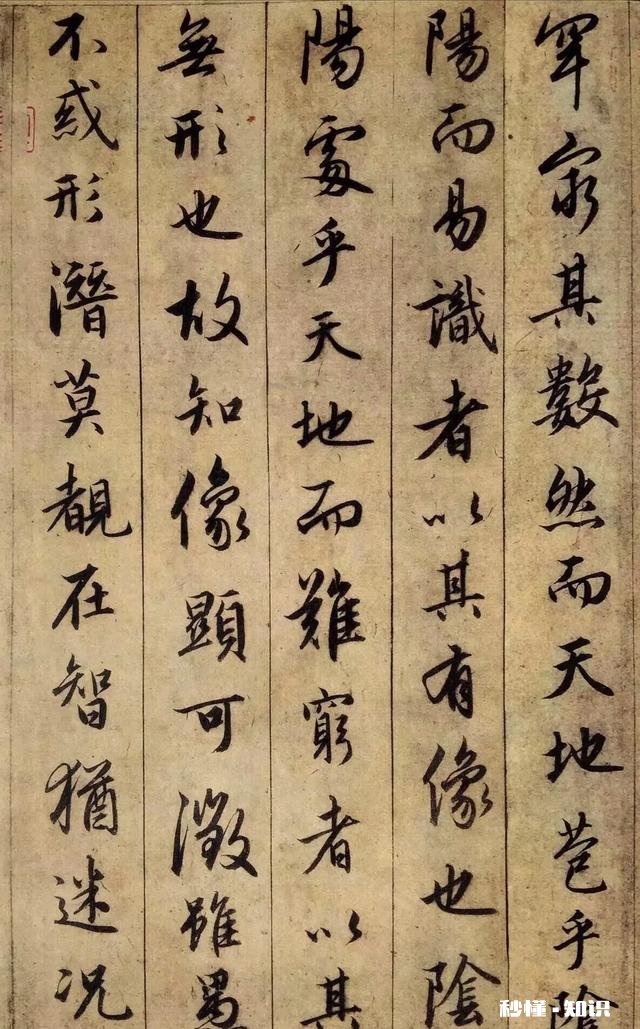 罕窮其數然而天地苞乎陰
陽而易識者以其有像也陰
陽處乎天地而難窮者以其
無形也故知像顯可徵雖愚
不惑形潛莫覩在智猶迷况
秒懂·知识